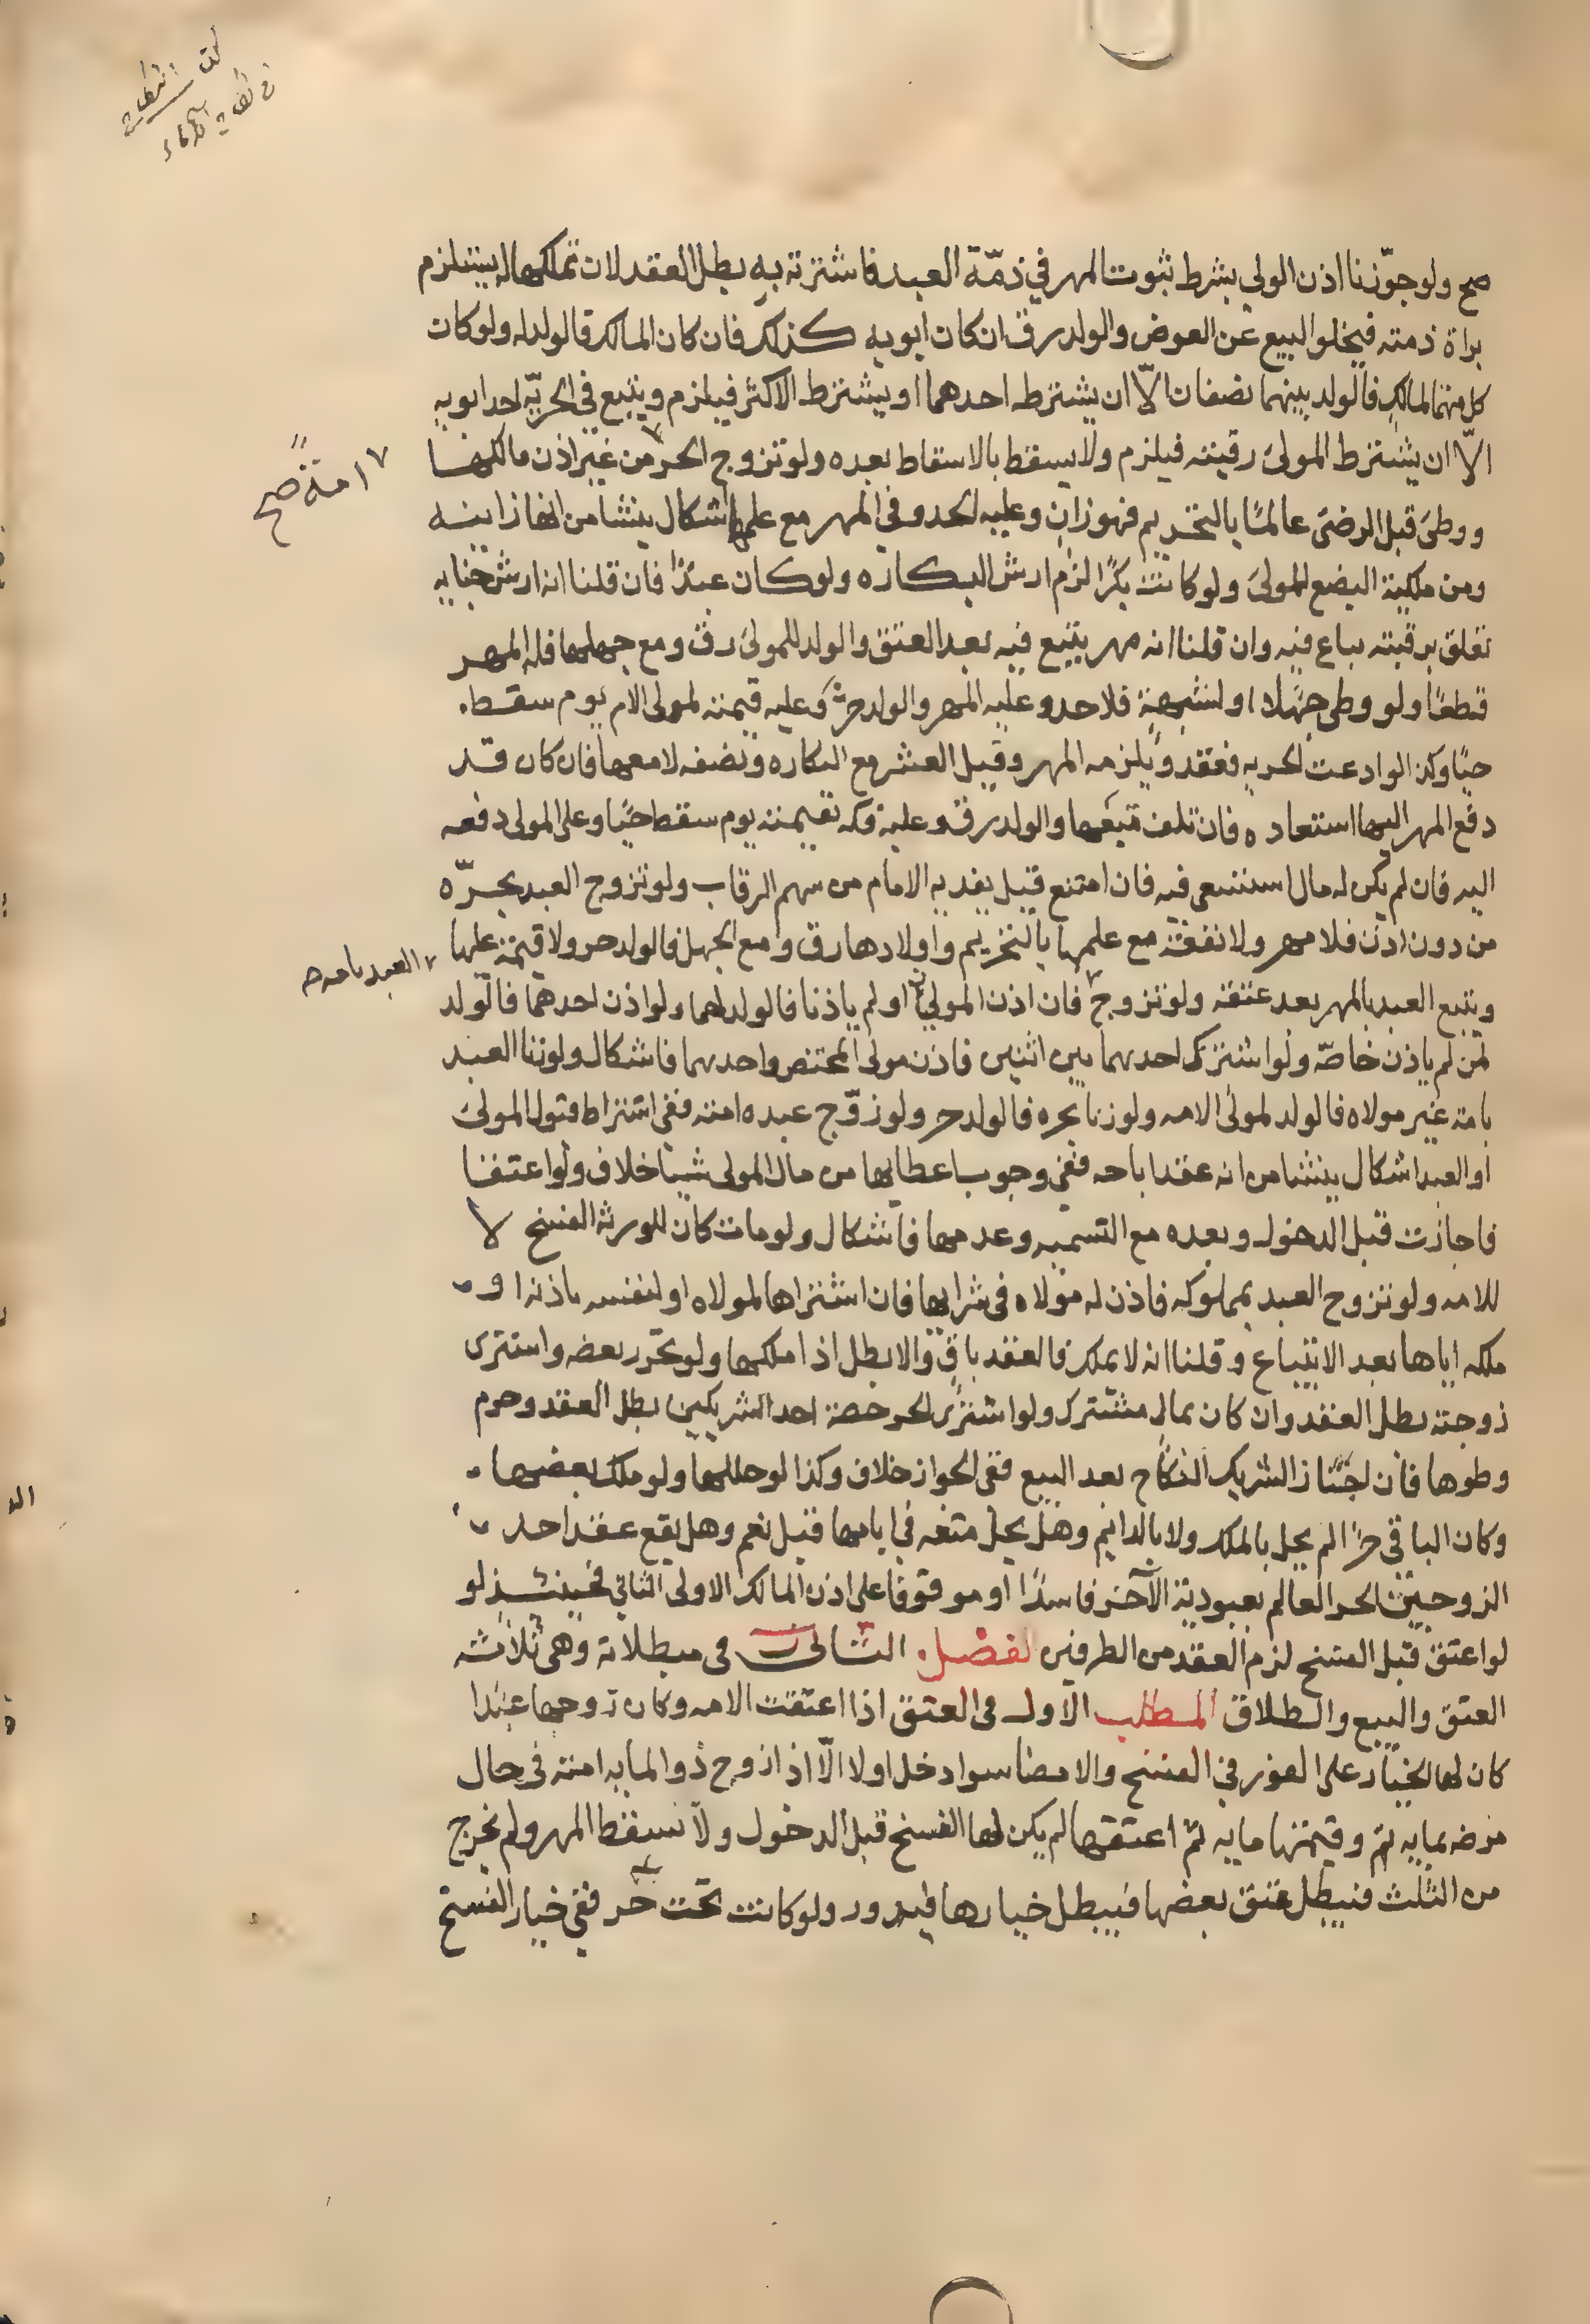 صح ولو جوّزنا اذن الولي بشرط ثبوت المهر في ذمّة العبد فاشترته به بطل العقد لان تملكها له يستلزم
براة ذمته فيخلوا البيع عن العوض والولد رق ان كان ابويه كذلك فان كان المالك قالولد له ولو كان
كل منهما لمالك فالولد بينهما نصفان الاّ ان يشترط احدهما او يشترط الاكثر فيلزم ويتبع في الحريّه احد ابويه
الاّ ان يشترط المولى رقيته فيلزم ولا يسقط بالاسقاط بعده ولو تزوج الحر من غير اذن مالكها
امة صح
ووطئ قبل الرضى عالمًا بالتحريم فهو زان وعليه الحد وفي المهر مع علمها اشكال ينشا من انها زانيه
ومن ملكية البضع للمولى ولو كانت بكرًا لزم ارش البكاره ولو كان عبدًا فان قلنا انه ارش جنايه
تعلق برقبته يباع فيه وان قلنا انه مهر يتبع فيه بعد العتق والولد للمولى رق ومع جهلها فله المهر
قطعًا ولو وطى جهلا او لشبهة فلا حد وعليه المهر والولد حر وعليه قيمته لمولى الام يوم سقط
حيًا وكذا لو ادعت الحريه فعقد ويلزمه المهر وقيل العشر مع البكاره ونصفه لا معها فان كان قد
دفع المهر اليها استعاده فان تلف تبعها والولد رق وعليه فكه بقيمته يوم سقط حيًا وعلى المولى دفعه
اليه فان لم يكن له مال استسعى فيه فان امتنع قيل يفديه الامام من سهم الرقاب ولو تزوج العبد بحرّه
من دون اذن فلا مهر ولا نفقة مع علمها بالتحريم واولادها رق ومع الجهل فالولد حر ولا قيمة عليها
العبد بامه صح
ويتبع العبد بالمهر بعد عتقه ولو تزوج فان اذن الموليان او لم ياذنا فالولد لهما ولو اذن احدهما فالولد
لمن لم ياذن خاصّه ولو اشترك احدهما بين اثنين فاذن مولى المختص واحدهما فاشكال ولو زنا العبد
بامة غير مولاه فالولد لمولى الامه ولو زنا بحره فالولد حر ولو زوّج عبده امته ففي اشتراط قبول المولى
او العبد اشكال ينشا من انه عقد اباحه ففي وجوب اعطايها من مال المولى شيا خلاف ولو اعتقا
فاجازت قبل الدخول وبعده مع التسميه وعدمها فاشكال ولو مات كان للورثة الفسخ لا
للامه ولو تزوج العبد بمملوكه فاذن له مولاه في شرايها فان اشتراها لمولاه او لنفسه باذنه او
ملكه اياها بعد الابتياع وقلنا انه لا يملك فالعقد باق والا بطل اذا ملكها ولو تحرر بعضه واشترى
زوجته بطل العقد وان كان بمال مشترك ولو اشترى الحر حصة احد الشريكين بطل العقد وحرم
وطوها فان اجاز الشريك النكاح بعد البيع ففي الجواز خلاف وكذا لو حللها ولو ملك بعضها
وكان الباقي حرًا لم يحل بالملك ولا بالدايم وهل يحل متعه في ايامها قيل نعم وهل يقع عقد احد
الزوجين الحر العالم بعبودية الآخر فاسدًا او موقوفا على اذن المالك الاولى الثاني فحينئذ لو
لو اعتق قبل الفسخ لزم العقد من الطرفين الفصل الثاني في مبطلاته وهي ثلاثه
العتق والبيع والطلاق المطلب الاول في العتق اذا اعتقت الامه وكان زوجها عبدا
كان لها الخيار على الفور في الفسخ والامضا سوا دخل اولا الاّ اذا زوج ذو المايه امته في حال
مرضه بمايه ثم وقيمتها مايه ثم اعتقها لم يكن لها الفسخ قبل الدخول ولا سقط المهر ولم تخرج
من الثلث فيبطل عتق بعضها فيبطل خيارها فيدور ولو كانت تحت حر ففي خيار الفسخ